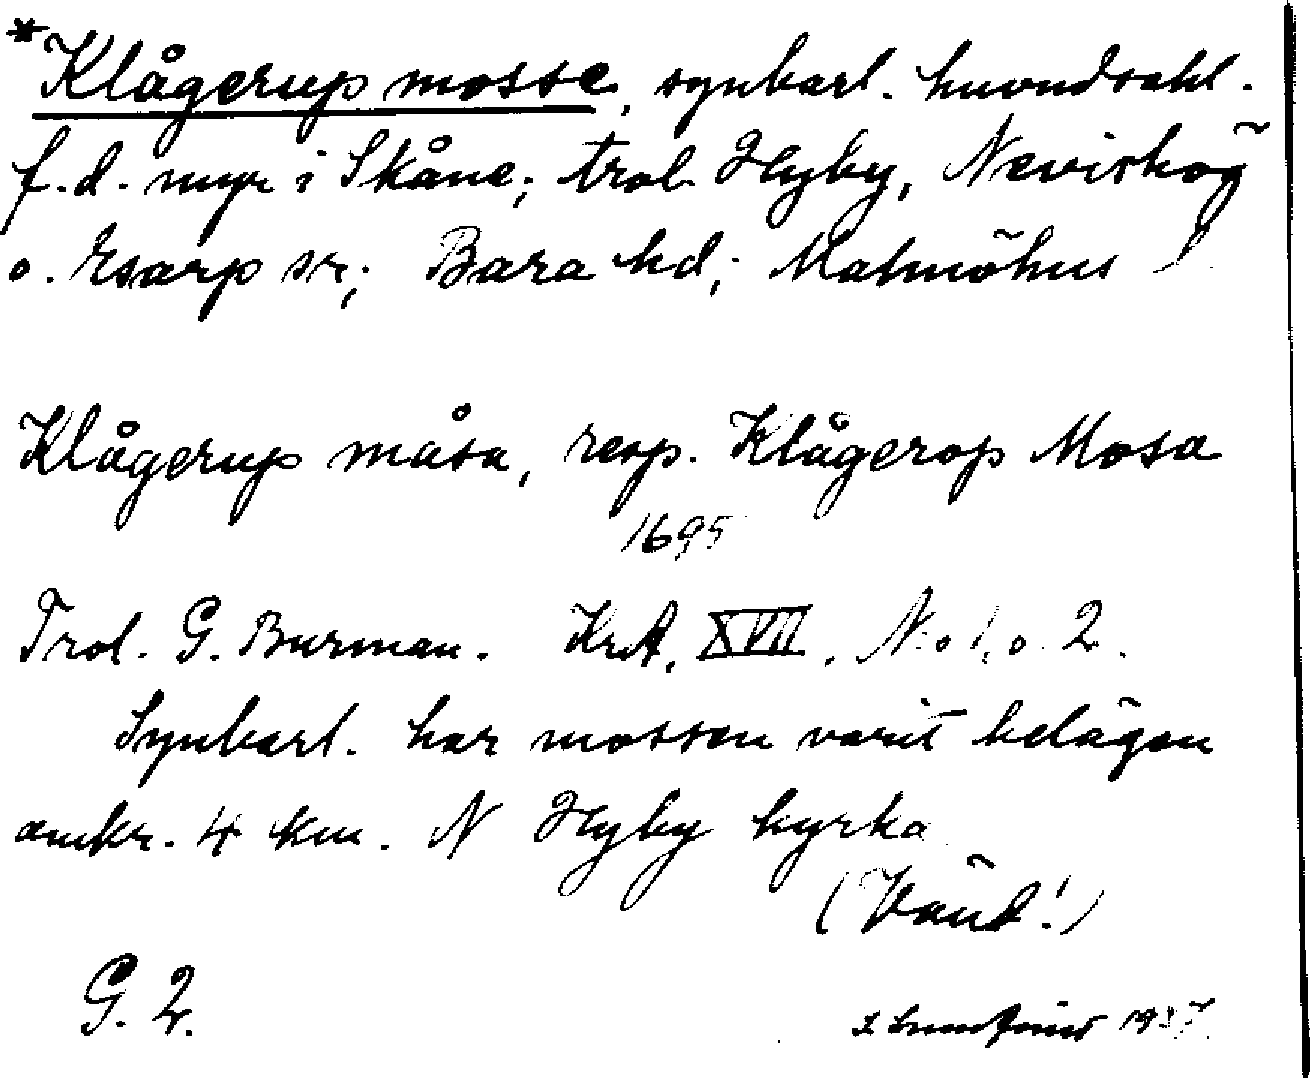 *Klågerup mosse, synbarl. huvudsakl.
f.d. myr i Skåne; trol. Hyby, Nevishög
o. Esarp sr; Bara hd; Malmöhus l.
Klågerup måsa, resp. Klågerop Mosa
1695
Trol. G. Burman. KrA, XVII, N:o 1, o. 2.
Synbarl. har mossen varit belägen
omkr. 4 km. N Hyby kyrka
(Vänd!)
G. 2.
1937